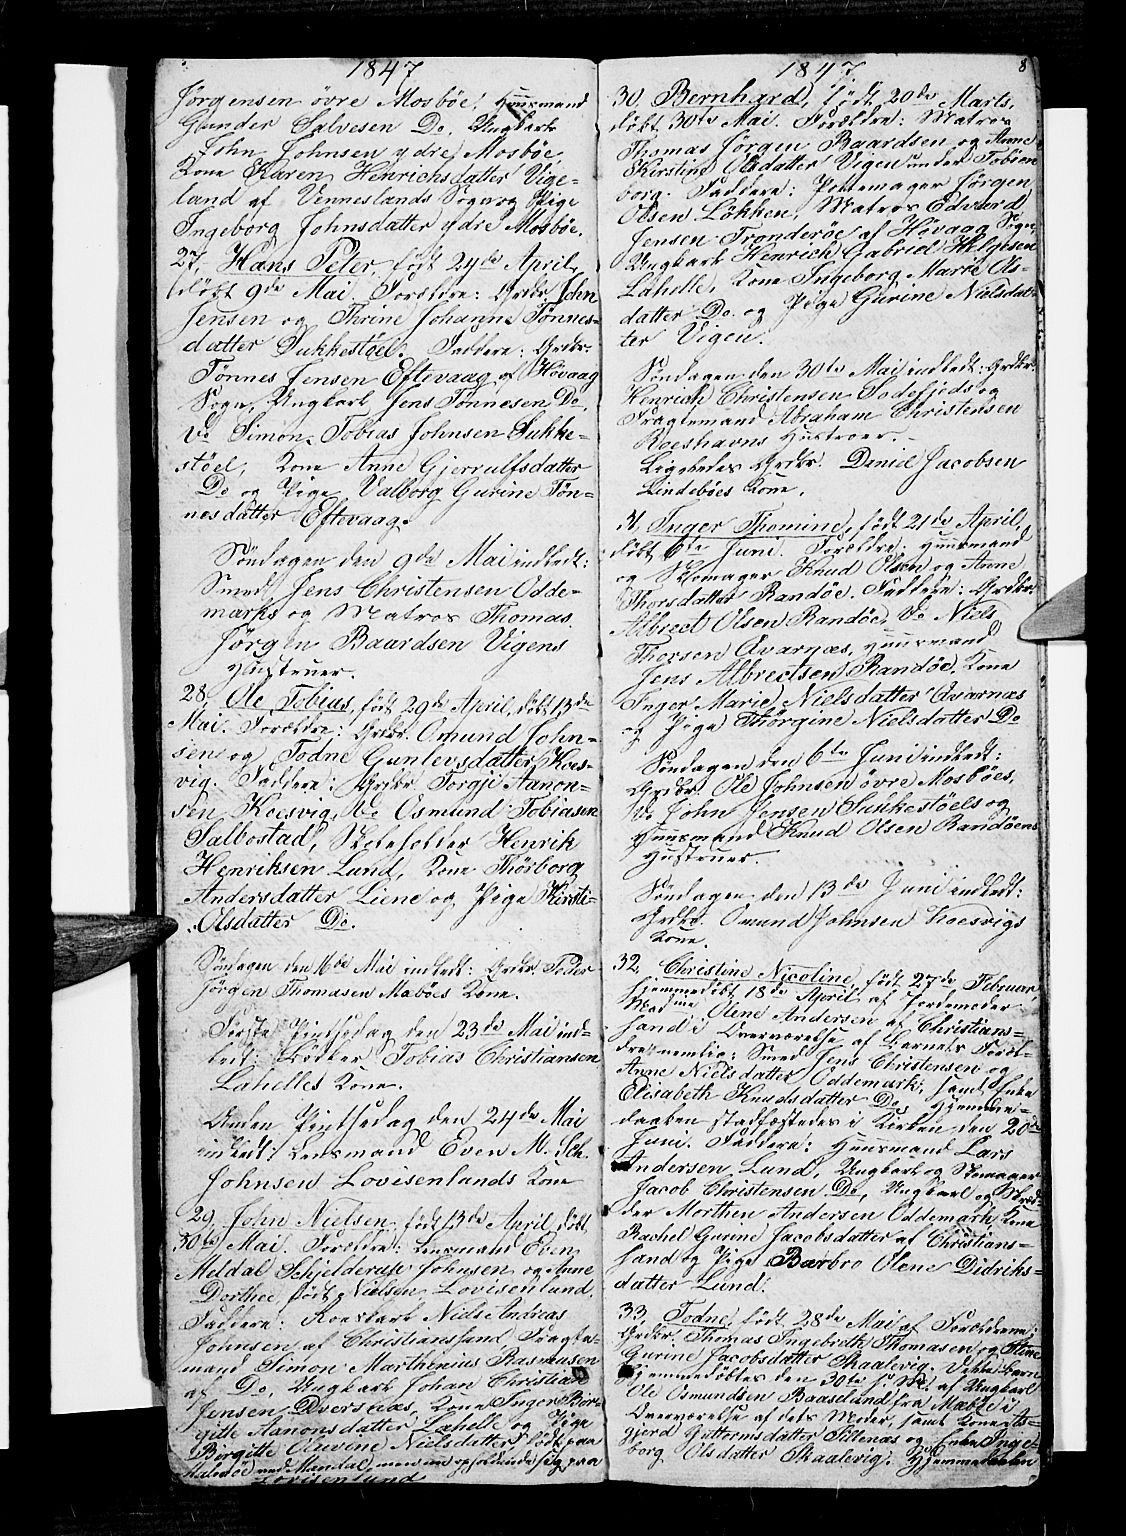 1847
Jørgensen övre Mosbøe, Huusmand
Gunder Salvesen Do. Ungkarl
John Johnsen ydre Mosbøe,
Kone Karen Henrichsdatter Vige-
land af Vennslands Sogn og Pige
Ingeborg Johnsdatter ydre Mosbøe.
27, Hans Peter, født 24de April,
døbt 9de Mai. Forældre: Grdbr. John
Jensen og Thrine Johanne Tønnes-
datter Sukkestøel. Faddere: Grdbr.
Tønnes Jensen Eftevaag af Høvaag
Sogn, Ungkarl Jens Tønnesen Do,
Do Simon Tobias Johnsen Sukke-
støel, Kone Anne Gjerrulfsdatter
Do og Pige Valborg Gurine Tøn-
nesdatter Eftevaag.
Søndagen den 9de Mai indledt:
Smed Jens Christensen Odde-
marks og Matros Thomas
Jørgen Baardsen Vigens
Hustruer.
28, Ole Tobias, født 29de April, døbt 13de
Mai. Forældre: Grdbr. Omund John-
sen og Todne Gunlevsdatter Koes-
vig. Faddere: Grdbr Torgje Aanon-
sen Koesvig, Do Osmund Tobiasen
Salbostad, Skoleholder Henrik
Henriksen Lund, Kone Thorborg
Andersdatter Liene og Pige Kirsti
Olsdatter Do.
Søndagen den 16de Mai indledt: Grdbr Peder
Jørgen Thomasen Maboes Kone.
Første Pintsedag den 23de Mai ind-
ledt: Bødker Tobias Christiansen
Lahelles Kone.
Anden Pintsedag den 24de Mai
indledt: Lensmand Even M. Sch.
Johnsen Lovisenlunds Kone
29, John Nielsen, født 13de April, døbt
30te Mai. Forældre: Lensmand Even
Meldal Schjelderup Johnsen og Anne
Dorthee, født Nielsen, Lovisenlund.
Faddere: Niels Andreas
Johnsen af Christianssand, Fragte-
mand Simon Marthenius Rasmusen
af Do, Ungkarl Johan Christian
Jensen Dversnæs, Kone Inger Bir-
gitte Aanonsdatter Lahelle og Pige
Birgitte Nielsdatter født paa
ved Mandal, men nu opholdende sig paa
Lovisenlund
1847 8
30, Bernhard, født 20de Marts,
døbt 30te Mai. Forældre: Matros
Thomas Jørgen Baardsen og Anne
Kirstine Olsdatter Vigen under Tobien-
borg. Faddere: Pottemager Jørgen
Olsen Løkken, Matros Edvard
Jensen Tronderøe af Høvaag Sogn,
Ungkarl Henrich Gabriel Helgesen
Lahelle, Kone Ingeborg Marie Ols-
datter Do. og Pige Gurine Nielsdat-
ter Vigen.
Søndagen den 30te Mai indledt: Grdbr.
Henrich Christensen Sodefjeds og
Fragtemand Abraham Christensen
Roeshavns Hustruer.
Ligeledes Grdbr. Daniel Jacobsen
Lindebøes Kone.
31, Inger Thomine, født 21de April,
døbt 6te Juni. Forældre: Huusmand
og Skomager Knud Olsen og Anne
Thorsdatter Randøe. Faddere: Grdbr.
Albrect Olsen Randøe, Do Niels
Thorsen Qvarnæs, Huusmand
Jens Albrectsen Randøe, Kone
Inger Marie Nielsdatter Qvarnæs
og Pige Thørgine Nielsdatter Do
Søndagen den 6te Juni indledt:
Grdbr. Ole Johnsen övre Mosbøes,
Do John Jensen Sukkestøels og
Huusmand Knud Olsen Randøens
Hustruer.
Søndagen den 13de Juni indledt:
Grdbr. Omund Johnsen Koesvigs
Kone.
32, Christine Nicoline, født 27de Februar,
hjemmedøbt 18de April af Jordemoder
Madme Olene Andersen af Christians-
sand i Overværelse af Barnets Foræl-
dre nemlig: Smed Jens Christensen og
Anne Nielsdatter Oddemark; samt Enke
Elisabeth Knudsdatter Do. Hjemme-
daaben stadfæstedes i Kirken den 20de
Juni. Faddere: Huusmand Lars
Andersen Lund, Ungkarl og Skomager
Jacob Christensen Do, Ungkarl og Skræd-
der Morthen Andersen Oddemark, Kone
Rachel Gurine Jacobsdatter af Christians-
sand og Pige Barbro Olene Didriks-
datter Lund.
33, Todne, født 28de Mai af Forældrene:
Grdbr. Thomas Ingebreth Thomasen og Stine
Gurine Jacobsdatter Skaalevig. Dette Barn
hjemmedøbtes den 30te s. M. af Ungkarl
Ole Osmundsen Baaselund fra Mable i
Overværelse af dets Moder, samt Kone As-
gjerd Guttormsdatter Stitenæs og Enke Inge-
borg Olsdatter Skaalevig. Hjemmedaaben